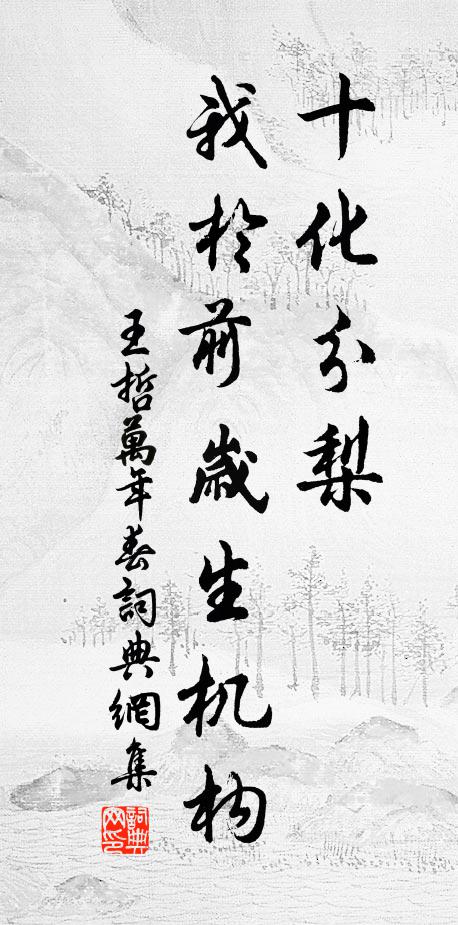 十化分梨
我於前歲生机构
王哲萬年春詞典網集
詞典網印